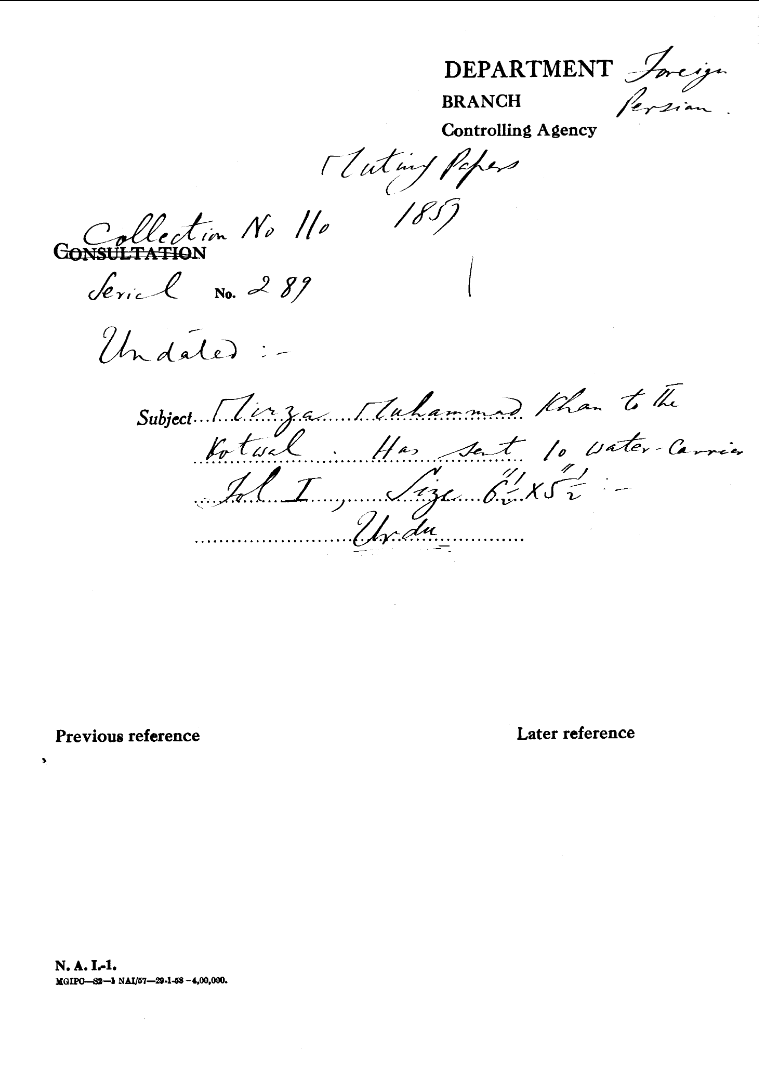 DEPARTMENT Foreign
BRANCH Persian.
Controlling Agency
Mutiny Papers
Collection No 110 1857
CONSULTATION
Serial No. 289
Undated :-
Subject Mirza Muhammad Khan to the
Kotwal. Has sent 10 water-carrier
Fol I, Size 6½" x 5½" :-
Urdu
Previous reference Later reference
N. A. I.-1.
MGIPC—S2—1 NAI/57—29-1-58—4,00,000.